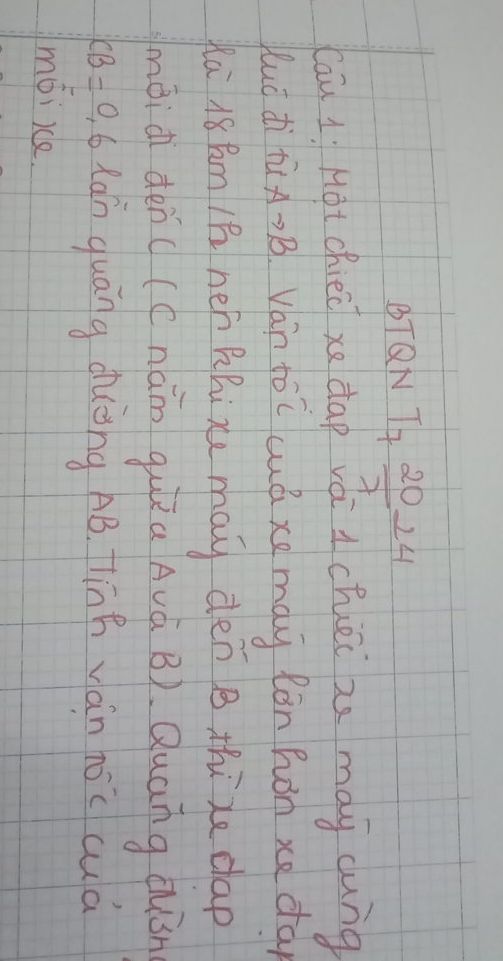 BTQN T7 20/7 24
Câu 1: Một chiếc xe đạp và 1 chiếc xe máy cùng
lúc đi từ A→B. Vận tốc của xe máy lớn hơn xe đạp
là 18km/h nên khi xe máy đến B thì xe đạp
mới đi đến C (C nằm giữa A và B). Quãng đường
CB = 0,6 lần quãng đường AB. Tính vận tốc của
mỗi xe.